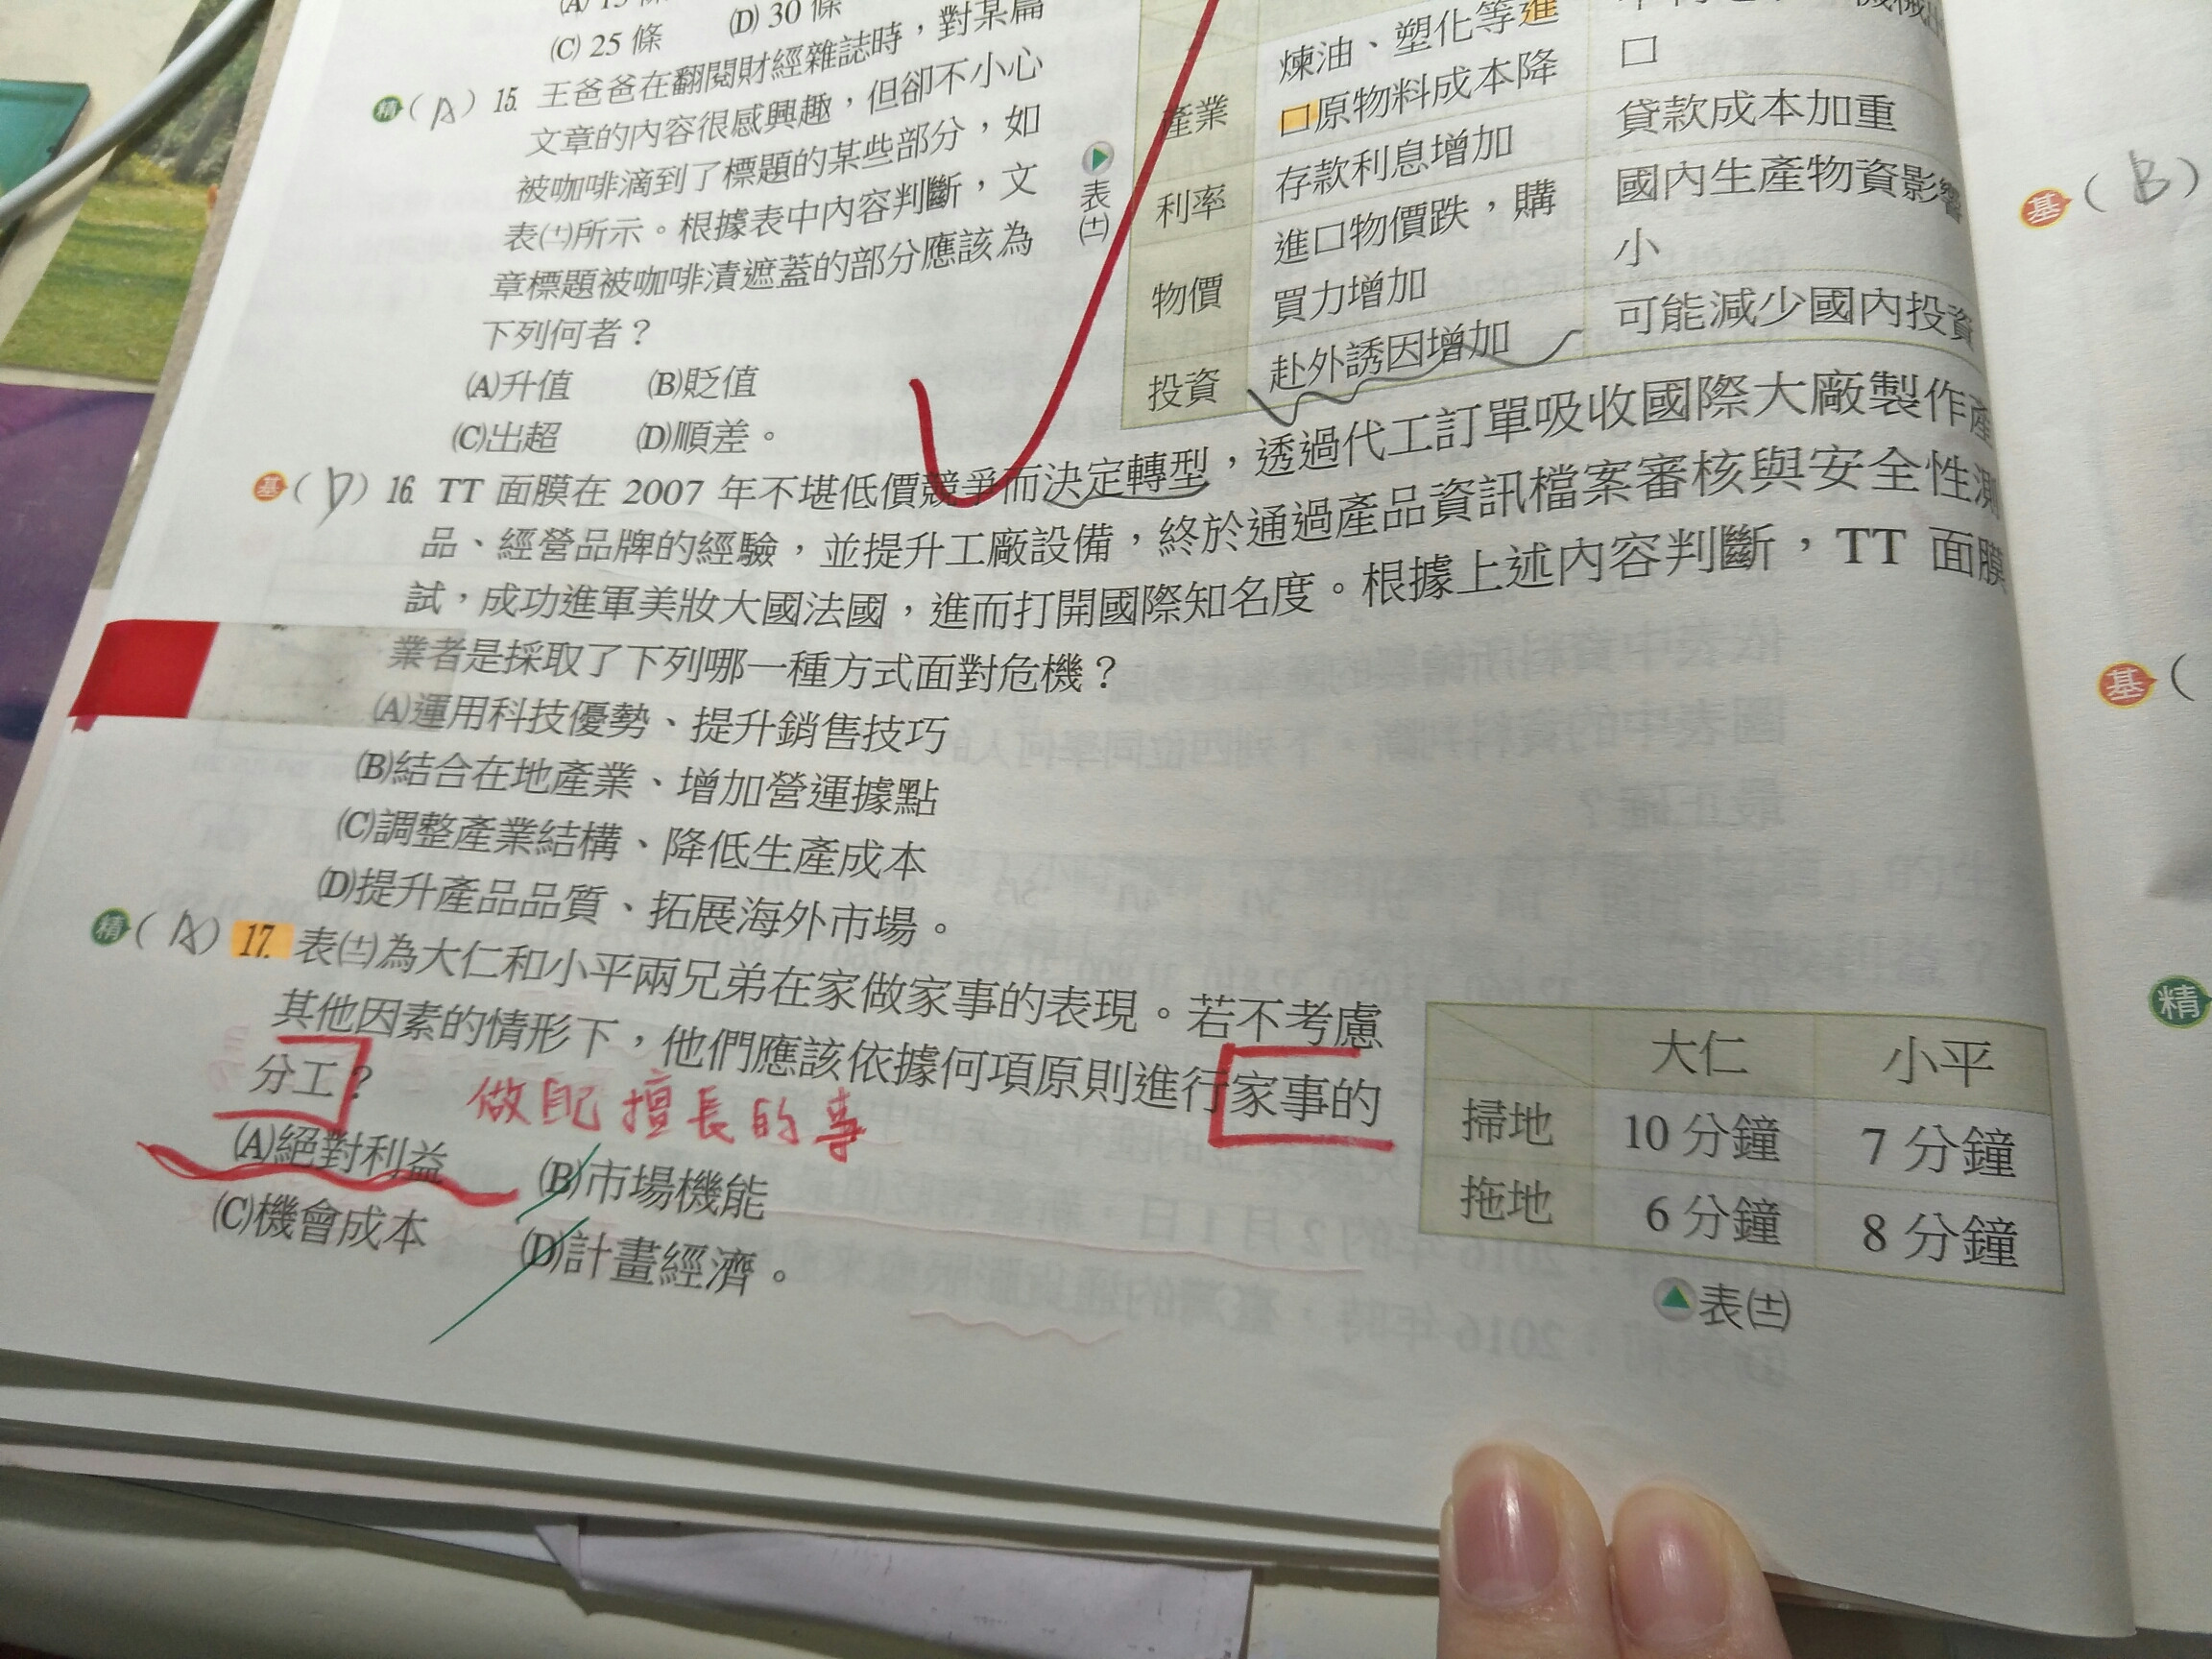 (C) 25 條 (D) 30 條
精 ( A ) 15. 王爸爸在翻閱財經雜誌時，對某篇
文章的內容很感興趣，但卻不小心
被咖啡滴到了標題的某些部分，如
表(十一)所示。根據表中內容判斷，文
章標題被咖啡漬遮蓋的部分應該為
下列何者？
(A)升值 (B)貶值
(C)出超 (D)順差。
煉油、塑化等進
產業 口原物料成本降 口
利率 存款利息增加 貸款成本加重
物價 進口物價跌，購 國內生產物資影響
買力增加 小
投資 赴外誘因增加 可能減少國內投資
表(十一)
基 ( D ) 16. TT 面膜在 2007 年不堪低價競爭而決定轉型，透過代工訂單吸收國際大廠製作產
品、經營品牌的經驗，並提升工廠設備，終於通過產品資訊檔案審核與安全性測
試，成功進軍美妝大國法國，進而打開國際知名度。根據上述內容判斷，TT 面膜
業者是採取了下列哪一種方式面對危機？
(A)運用科技優勢、提升銷售技巧
(B)結合在地產業、增加營運據點
(C)調整產業結構、降低生產成本
(D)提升產品品質、拓展海外市場。
精 ( A ) 17. 表(十二)為大仁和小平兩兄弟在家做家事的表現。若不考慮
其他因素的情形下，他們應該依據何項原則進行家事的
分工？
做自己擅長的事
(A)絕對利益 (B)市場機能
(C)機會成本 (D)計畫經濟。
大仁 小平
掃地 10 分鐘 7 分鐘
拖地 6 分鐘 8 分鐘
表(十二)
基 ( B )
基 (
精